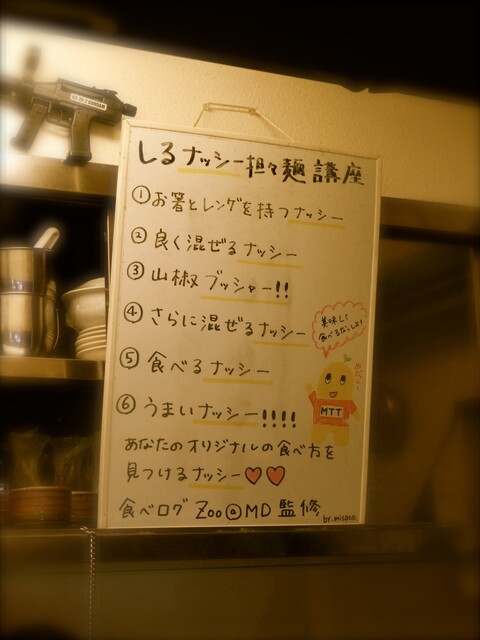 しるナッシー担々麺講座
①お箸とレンゲを持つナッシー
②良く混ぜるナッシー
③山椒ブッシャー!!
④さらに混ぜるナッシー
美味しく
食べるなっしょ!
⑤食べるナッシー
⑥うまいナッシー!!!!
MTT
あなたのオリジナルの食べ方を
見つけるナッシー♡♡
食べログ Zoo@MD 監修
by.misato.